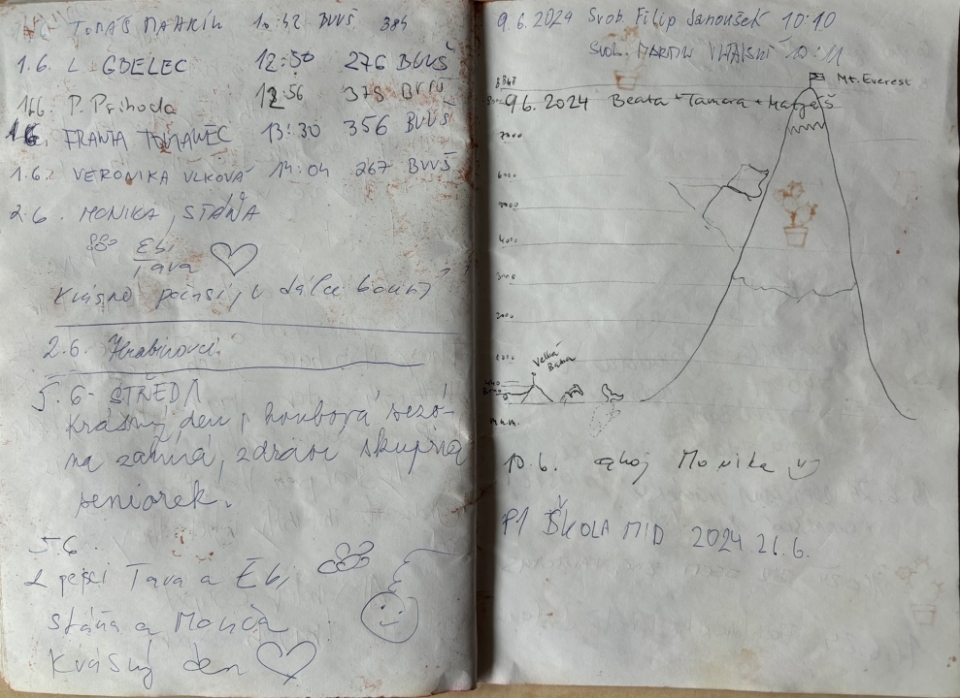 1.6. TOMÁŠ MAHRIK 12:42 BVVŠ 384
1.6. L. GDELEC 12:50 276 BVVŠ
1.6. P. Příhoda 12:56 378 BVVŠ
1.6. FRANTA 13:30 356 BVVŠ
1.6. VERONIKA VLKOVÁ 14:04 267 BVVŠ
2.6. MONIKA, STÁŇA
Ebi
Tava
Krásné počasí, v dálce
2.6. Hrabinovci
5.6. STŘEDA
Krásný den, houbová sezó-
na zahá, zdraví skupina
seniorek.
5.6.
2 pejsci Tava a Ebi,
Stáňa a Monča
Krásný den
9.6.2024 Svob. Filip Janoušek 10:10
Svob. MARTIN 10:11
8848
Mt. Everest
9.6.2024 Beata + Tamara + Matyáš
7000
6000
5000
4000
3000
2000
1000
Velká
Baba
m.n.m.
10.6. ahoj Monika
P1 ŠKOLA MJD 2024 26.6.